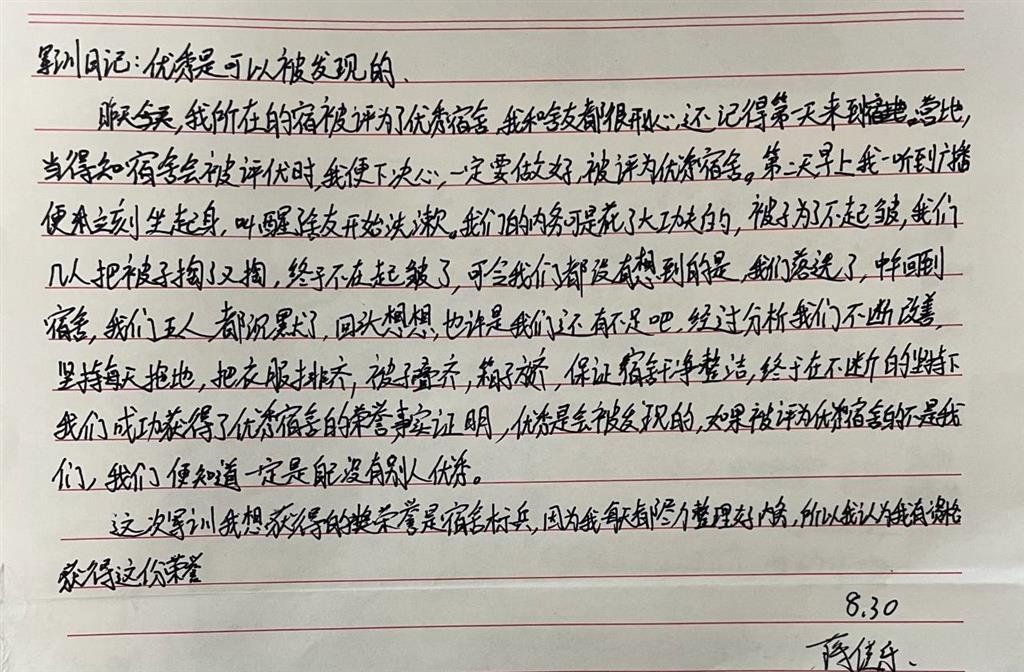 军训日记：优秀是可以被发现的.
昨天今天,我所在的宿被评为了优秀宿舍,我和舍友都很开心,还记得第一天来到宿地.营地,
当得知宿舍会被评优时,我便下决心,一定要做好,被评为优秀宿舍。第二天,早上我一听到广播
便立刻坐起身,叫醒了舍友开始洗漱。我们的内务可是花了大工夫的,被子为了不起皱,我们
几人把被子掏了又掏,终于不在起皱了,可令我们都没有想到的是,我们落选了,中午回到
宿舍,我们五人都沉默了,回头想想,也许是我们还有不足吧,经过分析我们不断改善,
坚持每天拖地,把衣服排齐,被子叠齐,箱子放齐,保证宿舍干净整洁,终于在不断的坚持下
我们成功获得了优秀宿舍的荣誉事实证明,优秀是会被发现的,如果被评为优秀宿舍的不是我
们,我们便知道一定是自己没有别人优秀。
这次军训我想获得的荣誉是宿舍标兵,因为我每天都尽力整理好内务,所以我认为我有资格
获得这份荣誉
8.30